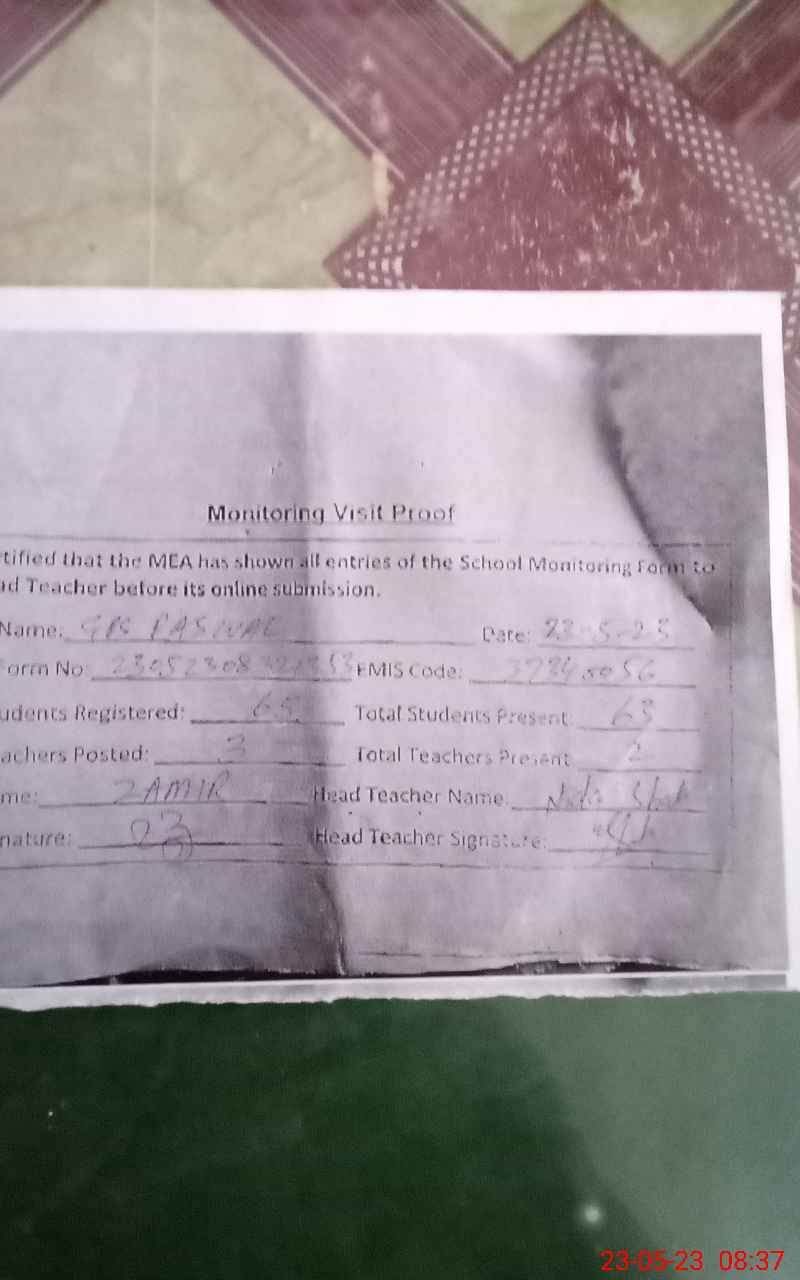 Monitoring Visit Proof
tified that the MEA has shown all entries of the School Monitoring Form to
ad Teacher before its online submission.
Name: Date: 23-5-23
orm No: EMIS Code:
udents Registered: 65 Total Students Present: 63
achers Posted: 3 Total Teachers Present: 2
me: ZAMIR Head Teacher Name:
nature: Head Teacher Signature:
23-05-23 08:37